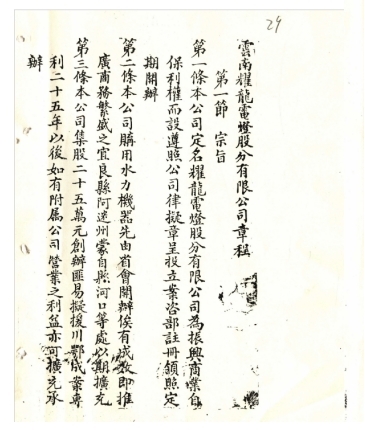 29
雲南耀龍電燈股分有限公司章程
第一節 宗旨
第一條本公司定名耀龍電燈股分有限公司為振興商業自
保利權而設遵照公司律擬章呈投立案咨部註冊領照定
期開辦
第二條本公司購用水力機器先由省會開辦俟有成效即推
廣商務繁盛之宜良縣阿迷州蒙自縣河口等處以期擴充
第三條本公司集股二十五萬元創辦匪易擬援川鄂成案專
利二十五年以後如有附属公司營業之利益亦可擴充承
辦